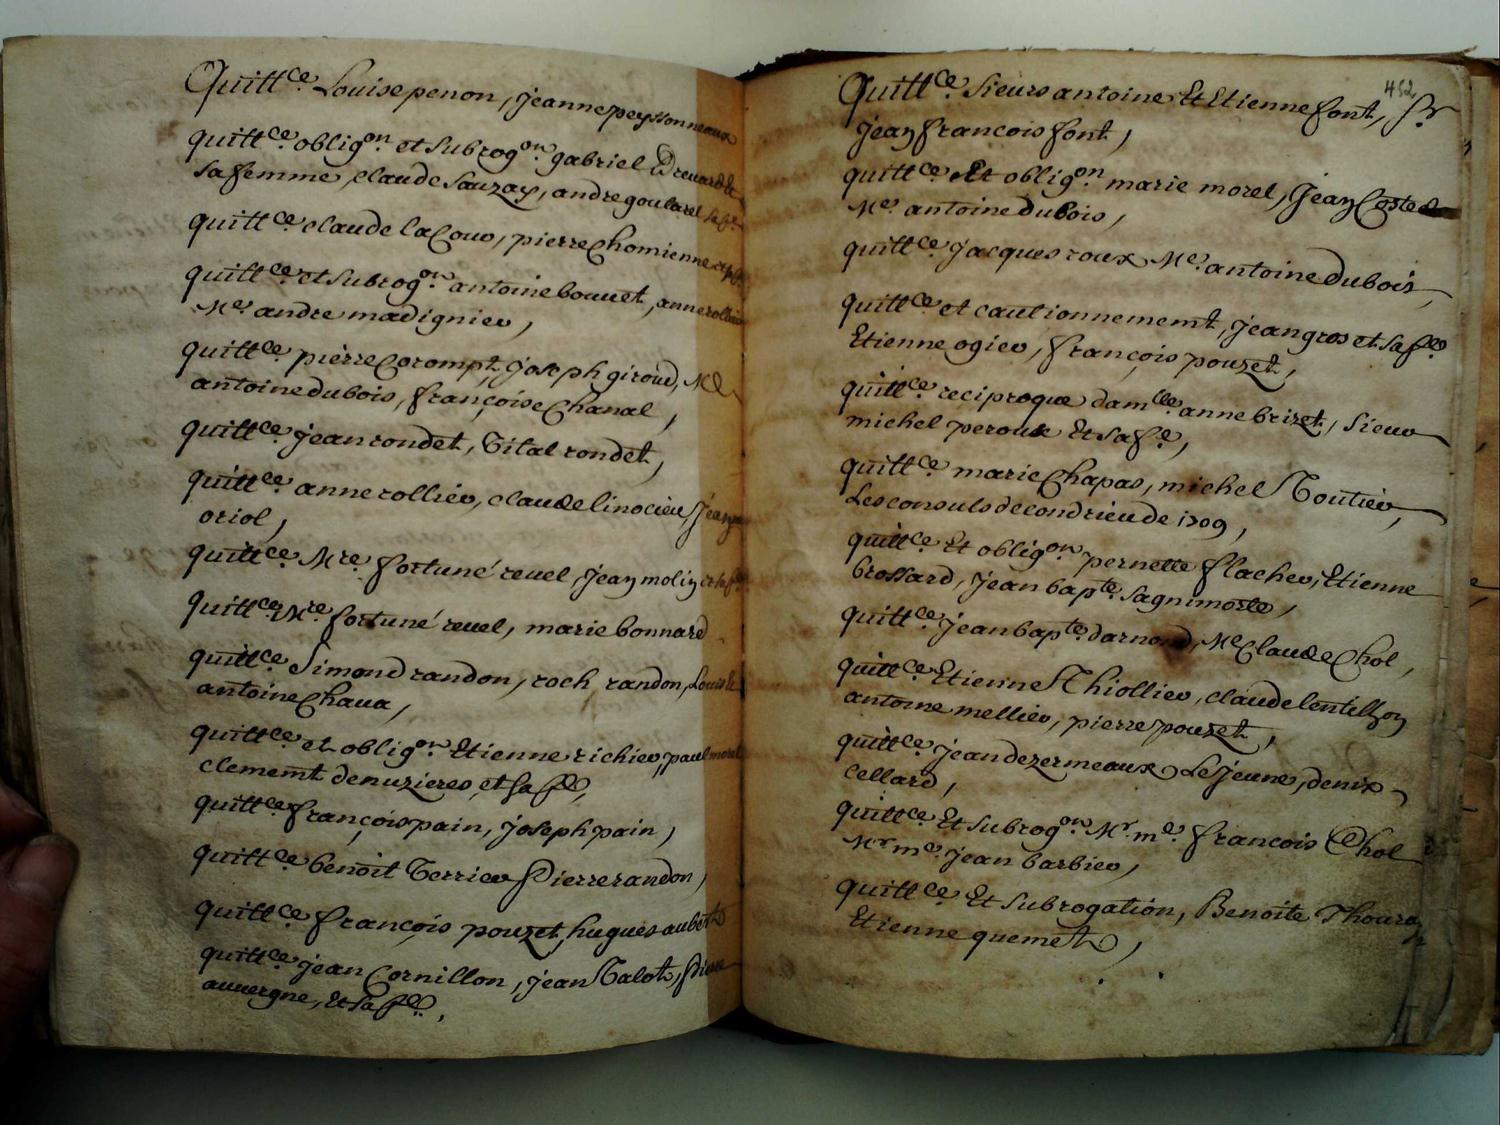 Quitt.ce Louise penon, Jeanne peyssonneaux
quitt.ce oblig.on et subrog.on gabriel Drevard et
sa femme, claude sauzay, andre goutarel
quitt.ce claude la Cour, pierre Chomienne
quitt.ce et subrog.on antoine bouvet, anne rollieu
Me. andre madignier,
quitt.ce pierre Corompt, Joseph giroud, Me
antoine dubois, françoise Chanal,
quitt.ce jean rondet, Vital rondet,
quitt.ce anne rollier, claude linocier, Jean
oriol,
quitt.ce Mre. fortuné revel, Jean molin
quitt.ce Mre fortuné revel, marie bonnard
quitt.ce Simond randon, roch randon, Louis Et
antoine Chava,
quitt.ce et oblig.on Etienne richier, paul morel
clement denuzieres, et sa fe.,
quitt.ce françois pain, joseph pain,
quitt.ce benoit Verrier, Pierre randon,
quitt.ce françois pouzet, hugues aubert
quitt.ce jean Cornillon, jean Valot, Pierre
auvergne, Et sa fe.,
452
Quitt.ce Sieurs antoine Et Etienne font, Sr.
jean francois font,
quitt.ce Et oblig.on marie morel, Jean Coste
Me. antoine dubois,
quitt.ce Jacques roux Me. antoine dubois,
quitt.ce et cautionnement, jean gros et sa fe.
Etienne ogier, françois pouzet,
quitt.ce reciproque dam.lle anne brizet, Sieur
michel peroux Et sa fe.,
quitt.ce marie Chapas, michel Toutier,
Les consuls de condrieu de 1709,
quitt.ce Et oblig.on pernette flacher, Etienne
brossard, Jean bap.te sagnimorte,
quitt.ce jean bap.te darnond, Me Claude Chol,
quitt.ce Etienne Thiollier, claude lentillon
antoine mellier, pierre pouzet,
quitt.ce jean dezermeaux Le Jeune, denix
cellard,
quitt.ce Et subrog.on Mr. me. francois Chol
Mr me. jean barbier,
quitt.ce Et subrogation, Benoite Thouron
Etienne quemet,